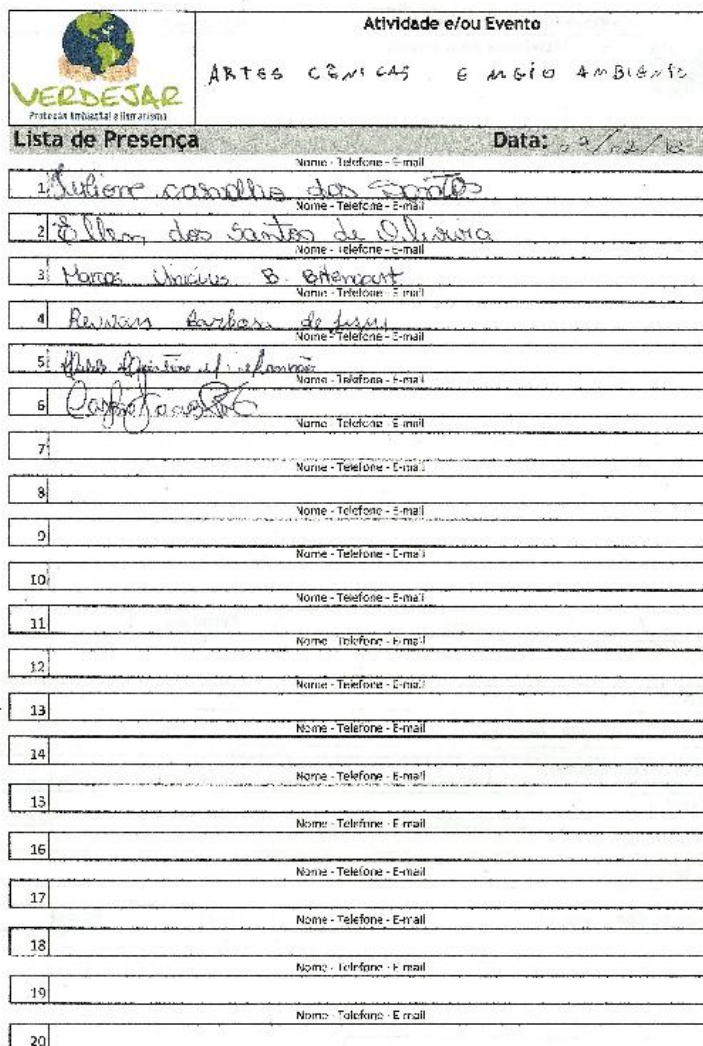 Atividade e/ou Evento
ARTES CÊNICAS E MEIO AMBIENTE
VERDEJAR
Proteção Ambiental e Humanismo
Lista de Presença Data:
Nome - Telefone - E-mail
1 carvalho dos Santos
Nome - Telefone - E-mail
2 Ellen dos Santos de Oliveira
Nome - Telefone - E-mail
3 Marcos Vinicius B. Bitencourt
Nome - Telefone - E-mail
4 Barbosa de
Nome - Telefone - E-mail
5
Nome - Telefone - E-mail
6
Nome - Telefone - E-mail
7
Nome - Telefone - E-mail
8
Nome - Telefone - E-mail
9
Nome - Telefone - E-mail
10
Nome - Telefone - E-mail
11
Nome - Telefone - E-mail
12
Nome - Telefone - E-mail
13
Nome - Telefone - E-mail
14
Nome - Telefone - E-mail
15
Nome - Telefone - E-mail
16
Nome - Telefone - E-mail
17
Nome - Telefone - E-mail
18
Nome - Telefone - E-mail
19
Nome - Telefone - E-mail
20